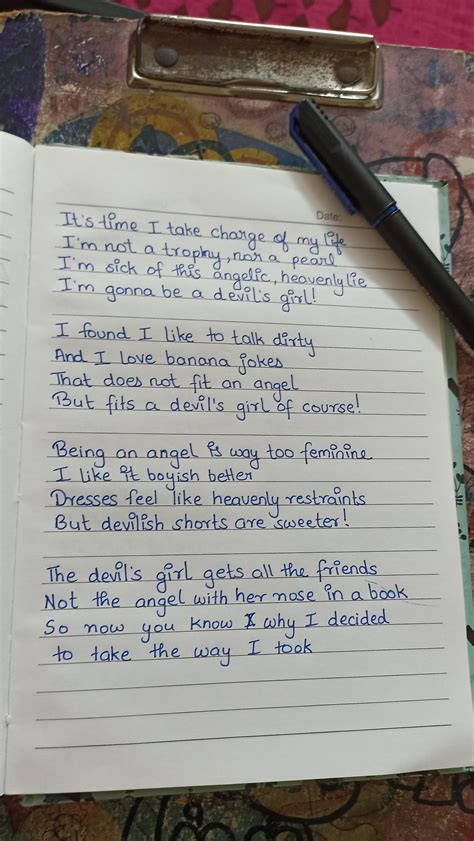 Date:
It's time I take charge of my life
I'm not a trophy, nor a pearl
I'm sick of this angelic, heavenly lie
I'm gonna be a devil's girl!
I found I like to talk dirty
And I love banana jokes
That does not fit an angel
But fits a devil's girl of course!
Being an angel is way too feminine
I like it boyish better
Dresses feel like heavenly restraints
But devilish shorts are sweeter!
The devil's girl gets all the friends
Not the angel with her nose in a book
So now you know why I decided
to take the way I took